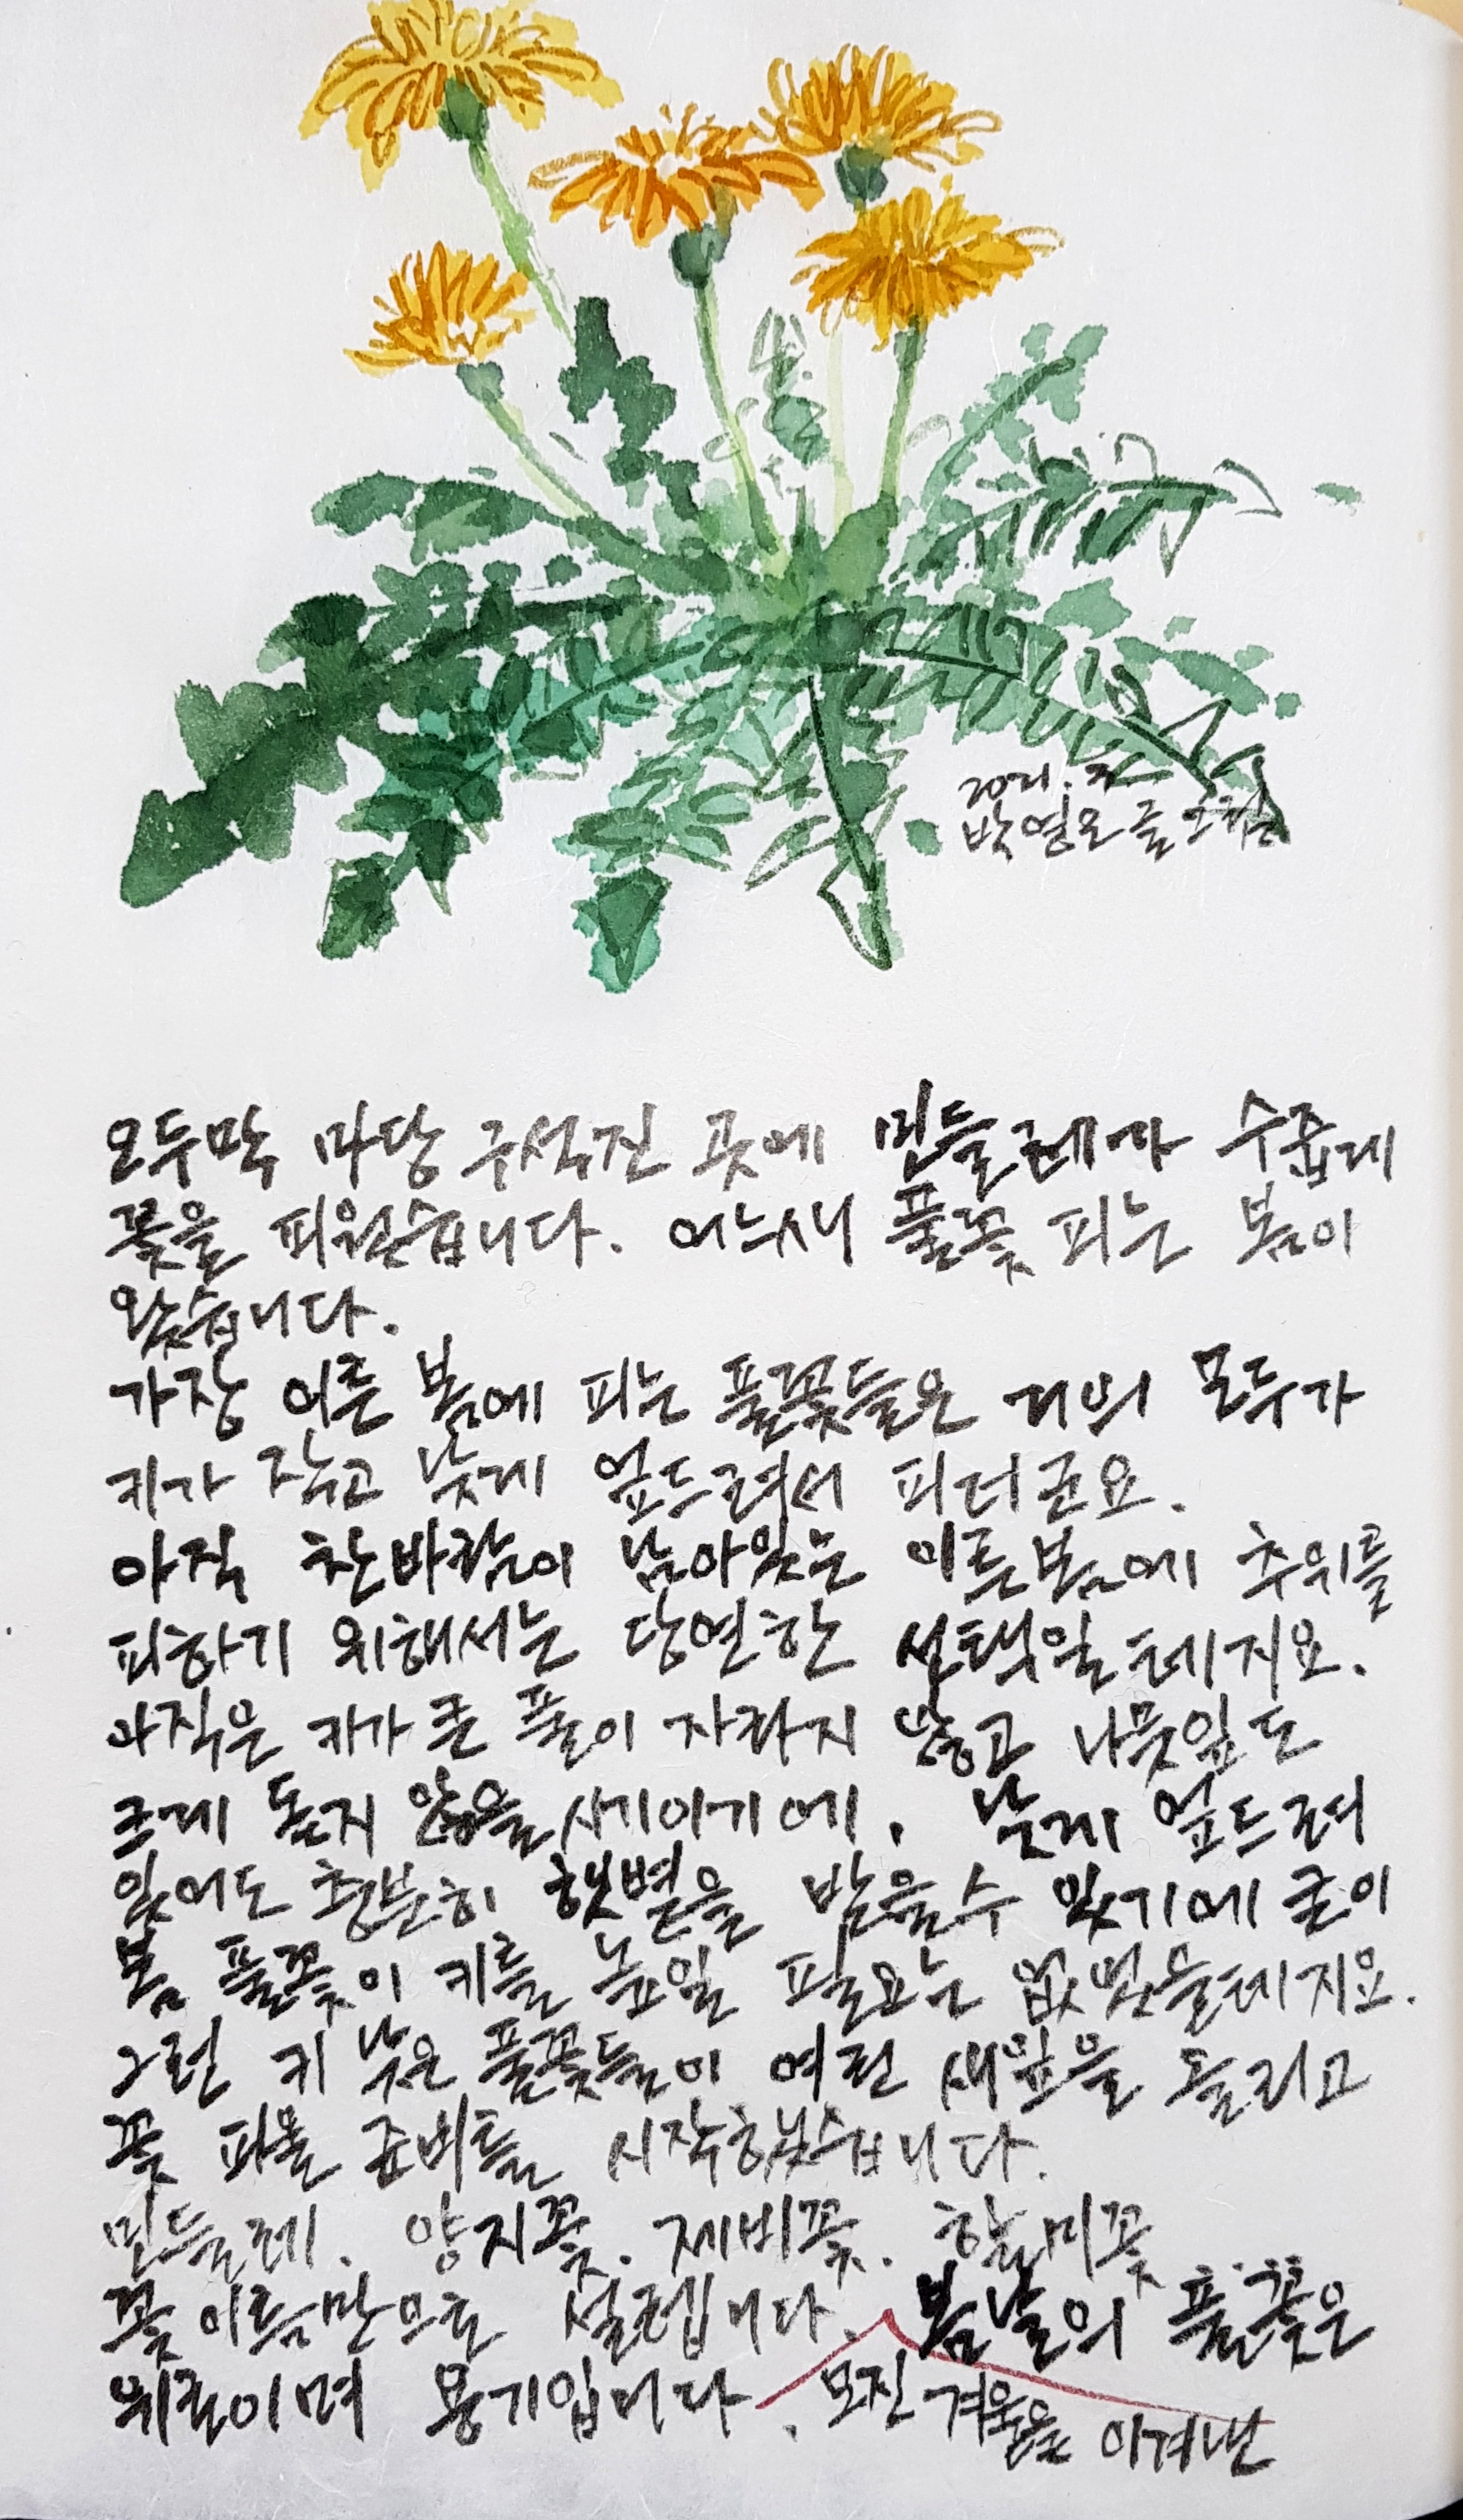 2021. 3
박영오 글 그림
오두막 마당 구석진 곳에 민들레가 수줍게
꽃을 피웠습니다. 어느새 풀꽃 피는 봄이
왔습니다.
가장 이른 봄에 피는 풀꽃들은 거의 모두가
키가 작고 낮게 엎드려서 피더군요.
아직 찬바람이 남아있는 이른봄에 추위를
피하기 위해서는 당연한 선택일테지요.
아직은 키가 큰 풀이 자라지 않고 나뭇잎도
크게 돋지 않을 시기이기에, 낮게 엎드려
있어도 충분히 햇볕을 받을수 있기에 굳이
봄 풀꽃이 키를 높일 필요는 없었을테지요.
그런 키 낮은 풀꽃들이 여린 새잎을 틔우고
꽃 피울 준비를 시작했습니다.
민들레. 양지꽃. 제비꽃. 할미꽃
꽃 이름만으로 설렙니다. 봄날의 풀꽃은
위로이며 용기입니다. 모진 겨울을 이겨낸